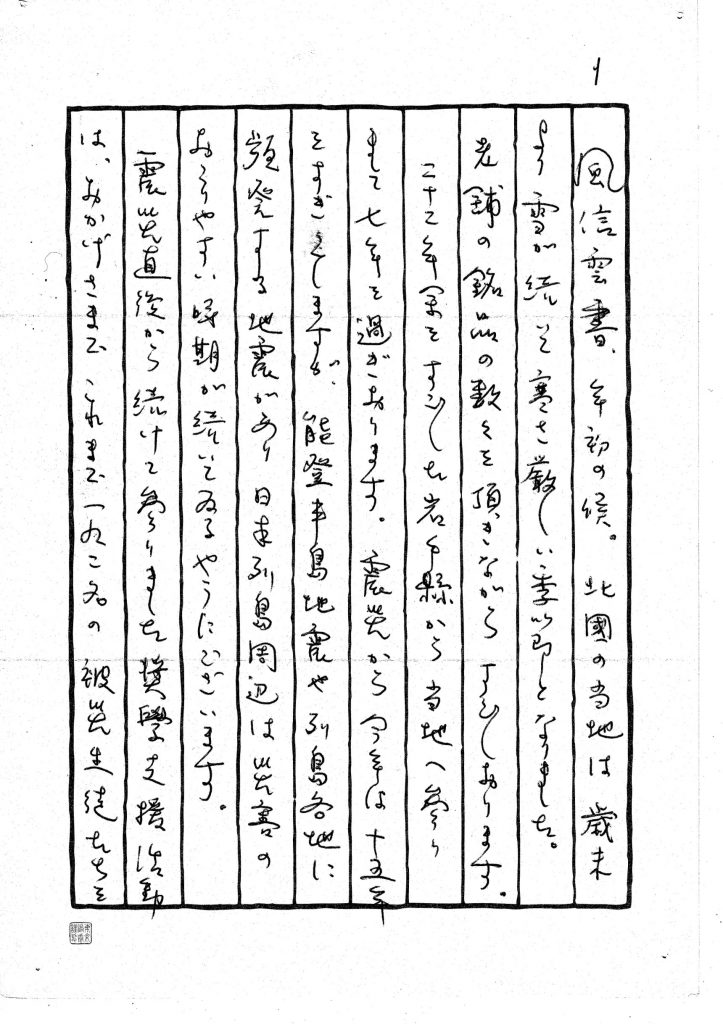 1
風信雲書、年初の候。北國の当地は歳末
より雪が続いて寒さ厳しい季節となりました。
老舗の銘品の数々を頂きながらすごしおります。
二十二年余をすごした岩手縣から当地へ参り
まして七年を過ぎおります。震災から今年は十五年
をすぎとしますが、能登半島地震や列島各地に
頻発する地震があり日本列島周辺は災害の
おこりやすい時期が続いてゐるやうにございます。
震災直後から続けて参りました奨學支援活動
は、おかげさまでこれまで一九二名の被災生徒たちを